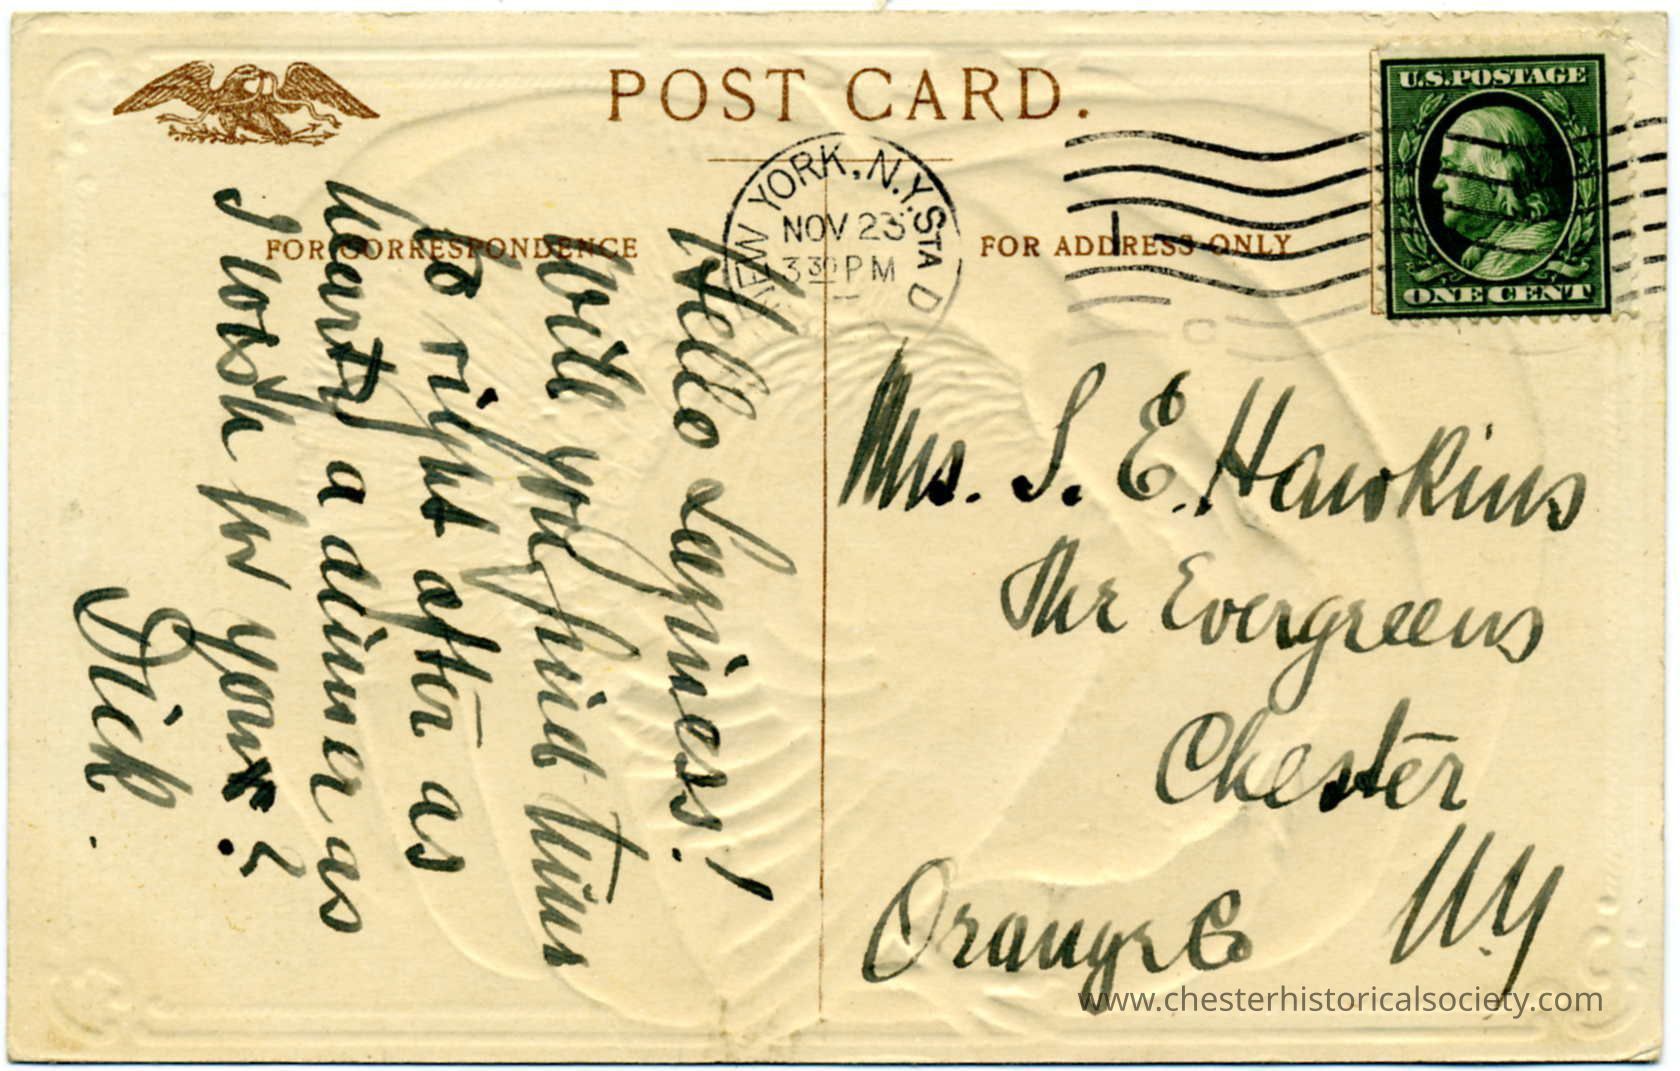 POST CARD.
U.S. POSTAGE
ONE CENT
NEW YORK, N.Y. STA D
NOV 23
3 30 PM
1
C
FOR CORRESPONDENCE
FOR ADDRESS ONLY
Hello Laziness!
Will you find time
to right after as
hearty a dinner as
I wish for you?
Dick.
Mrs. S. E. Hawkins
The Evergreens
Chester
Orange Co N.Y
www.chesterhistoricalsociety.com